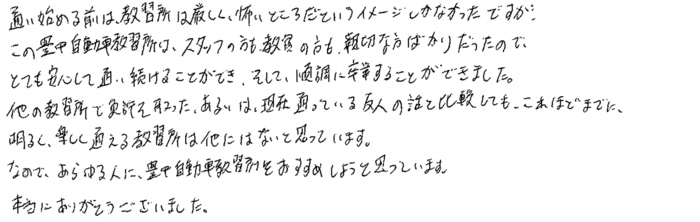 通い始める前は、教習所は厳しく、怖いところだというイメージしかなかったですが、
この豊中自動車教習所は、スタッフの方も、教官の方も、親切な方ばかりだったので、
とても安心して通い続けることができ、そして、順調に卒業することができました。
他の教習所で免許を取った、あるいは、現在通っている友人の話と比較しても、これほどまでに、
明るく、楽しく通える教習所は他にはないと思っています。
なので、あらゆる人に、豊中自動車教習所をおすすめしようと思っています。
本当にありがとうございました。